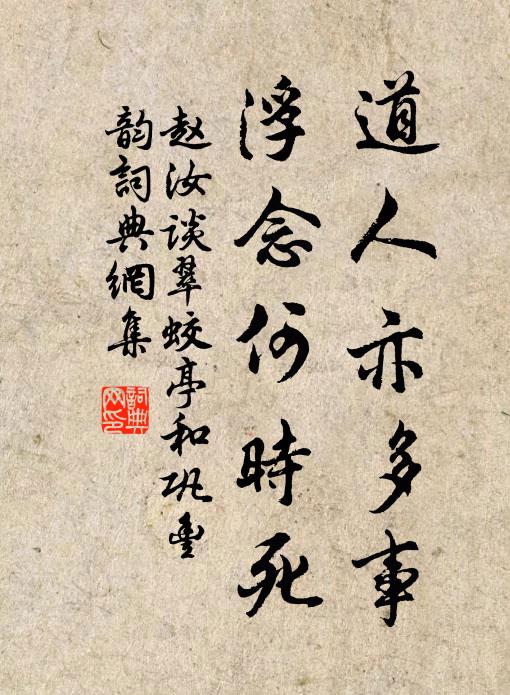 道人亦多事
浮念何時死
赵汝谈翠蛟亭和巩豊
韵詞典網集
詞典
网印